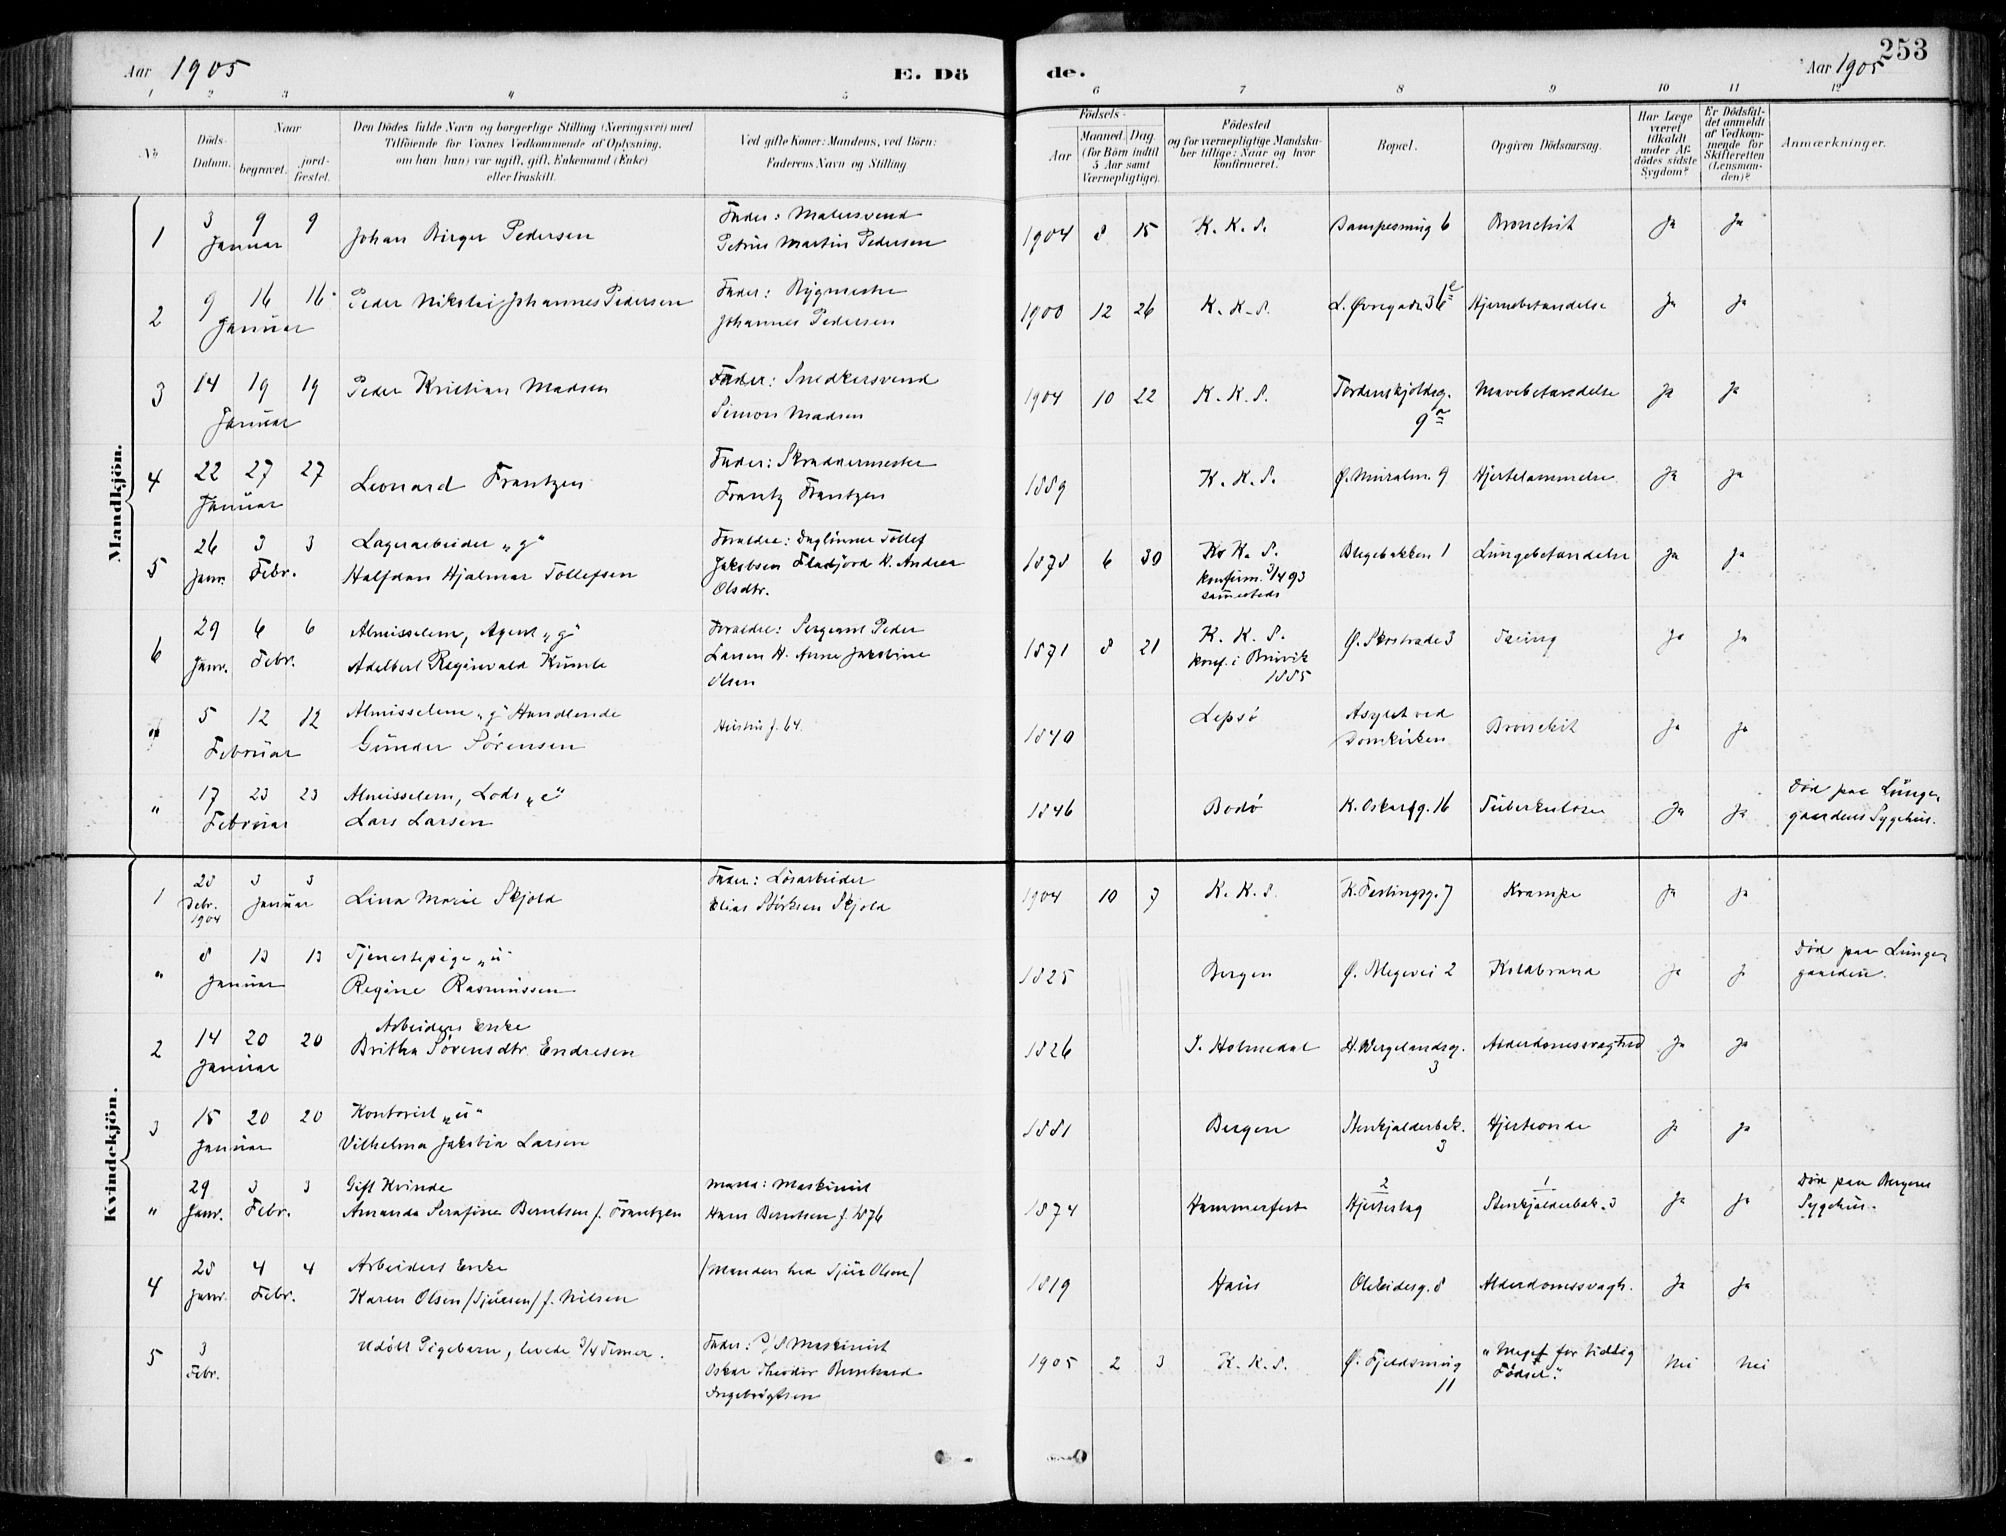 Aar 1905 E. Dö de. Aar 1905 253
1 2 3 4 5 6 7 8 9 10 11 12
No Döds-Datum. Naar begravet. jord-fæstet. Den Dödes fulde Navn og borgerlige Stilling (Næringsvei) med Tilföiende for Voxnes Vedkommende af Oplysning, om han (hun) var ugift, gift, Enkemand (Enke) eller fraskilt. Ved gifte Koner: Mandens, ved Börn: Faderens Navn og Stilling Födsels- Aar Maaned Dag (for Börn indtil 5 Aar samt Værnepligtige). Födested og for værnepligtige Mandskaber tillige: Naar og hvor konfirmeret. Bopæl. Opgiven Dödsaarsag. Har Læge været tilkaldt under Afdödes sidste Sygdom? Er Dödsfaldet anmeldt af Vedkommende for Skifteretten (Lensmanden)? Anmærkninger.
Mandkjön.
1 3 9 9 Januar Johan Birger Pedersen Fader: Malersvend Petrus Martin Pedersen 1904 8 15 K. K. S. Dampesmug 6 Bronchit Ja Ja
2 9 16 16 Januar Peder Nikolai Johannes Pedersen Fader: Bygmester Johannes Pedersen 1900 12 26 K. K. S. L. Øvregade 36 e Hjernebetændelse Ja Ja
3 14 19 19 Januar Peder Kristian Madsen Fader: Snedkersvend Simon Madsen 1904 10 22 K. K. S. Tordenskjoldsg. 9 a Mavebetændelse Ja Ja
4 22 27 27 Januar Leonard Frantzen Fader: Skræddermester Frantz Frantzen 1889 K. K. S. Ø. Muralm. 9 Hjertelammelse Ja Ja
5 26 Janr. 3 3 Febr. Lagerarbeider "g" Halfdan Hjalmar Tollefsen Forældre: Daglönner Tollef Jakobsen Fladjord H. Andrea Olsdtr. 1878 6 30 K. K. S. konfirm. 3/4 93 sammesteds Blegebakken 1 Lungebetændelse Ja Ja
6 29 Janr. 6 6 Febr. Almisselem, Agent "g" Adelbert Reginvald Kumle Forældre: Sergeant Peder Larsen H. Anne Jakobine Olsen 1871 8 21 K. K. S. konf. i 1885 Ø. Skostræde 3 Tæring Ja Ja
5 12 12 Februar Almisselem "g" Handlende Gunder Sörensen Hustru f. 64. 1840 Lepsö Asylet ved Domkirken Bronchit Ja Ja
" 17 23 23 Februar Almisselem, Lods "e" Lars Larsen 1846 Bodö K. Oskarsg. 16 Tuberkulose Ja Ja Död paa Lungegaardens Sygehus.
Kvindekjön.
1 28 Debr. 1904 3 3 Januar Lina Marie Skjold Fader: Lösarbeider Elias Störksen Skjold 1904 10 7 K. K. S. K. Festingsg. 7 Krampe Ja Ja
" 8 13 13 Januar Tjenestepige "u" Regine Rasmussen 1825 Bergen Ø. Blegevei 2 Koldbrand Ja Ja Död paa Lungegaarden.
2 14 20 20 Januar Arbeiders Enke Britha Sörensdtr. Endresen 1826 I. Holmedal H. Wergelandsg. 3 Alderdomssvaghed Ja Ja
3 15 20 20 Januar Kontorist "u" Vilhelma Jakobia Larsen 1881 Bergen Stenkjælderbak. 3 Hjerteonde Ja Ja
" 29 Janr. 3 3 Febr. Gift Kvinde Amanda Serafine Berntsen f. Frantzen Mand: Maskinist Hans Berntsen f. 1876 1874 Hammerfest 2 Hjerteslag 1 Stenkjælderbak. 3 Ja Ja Död paa Bergens Sygehus.
4 28 Janr. 4 4 Febr. Arbeiders Enke Karen Olsen /Sjursen/ f. Nilsen /Manden hed Sjur Olsen/ 1819 Haus Ole Eidesg. 8 Alderdomssvagh. Ja Ja
5 3 Febr. Udöbt Pigebarn, levede 3/4 Timer. Fader: P/S Maskinist Oskar Theodor Bernhard Ingebrigtsen 1905 2 3 K. K. S. Ø. Fjeldsmug 11 "Meget for tidlig Födsel". Nei Nei